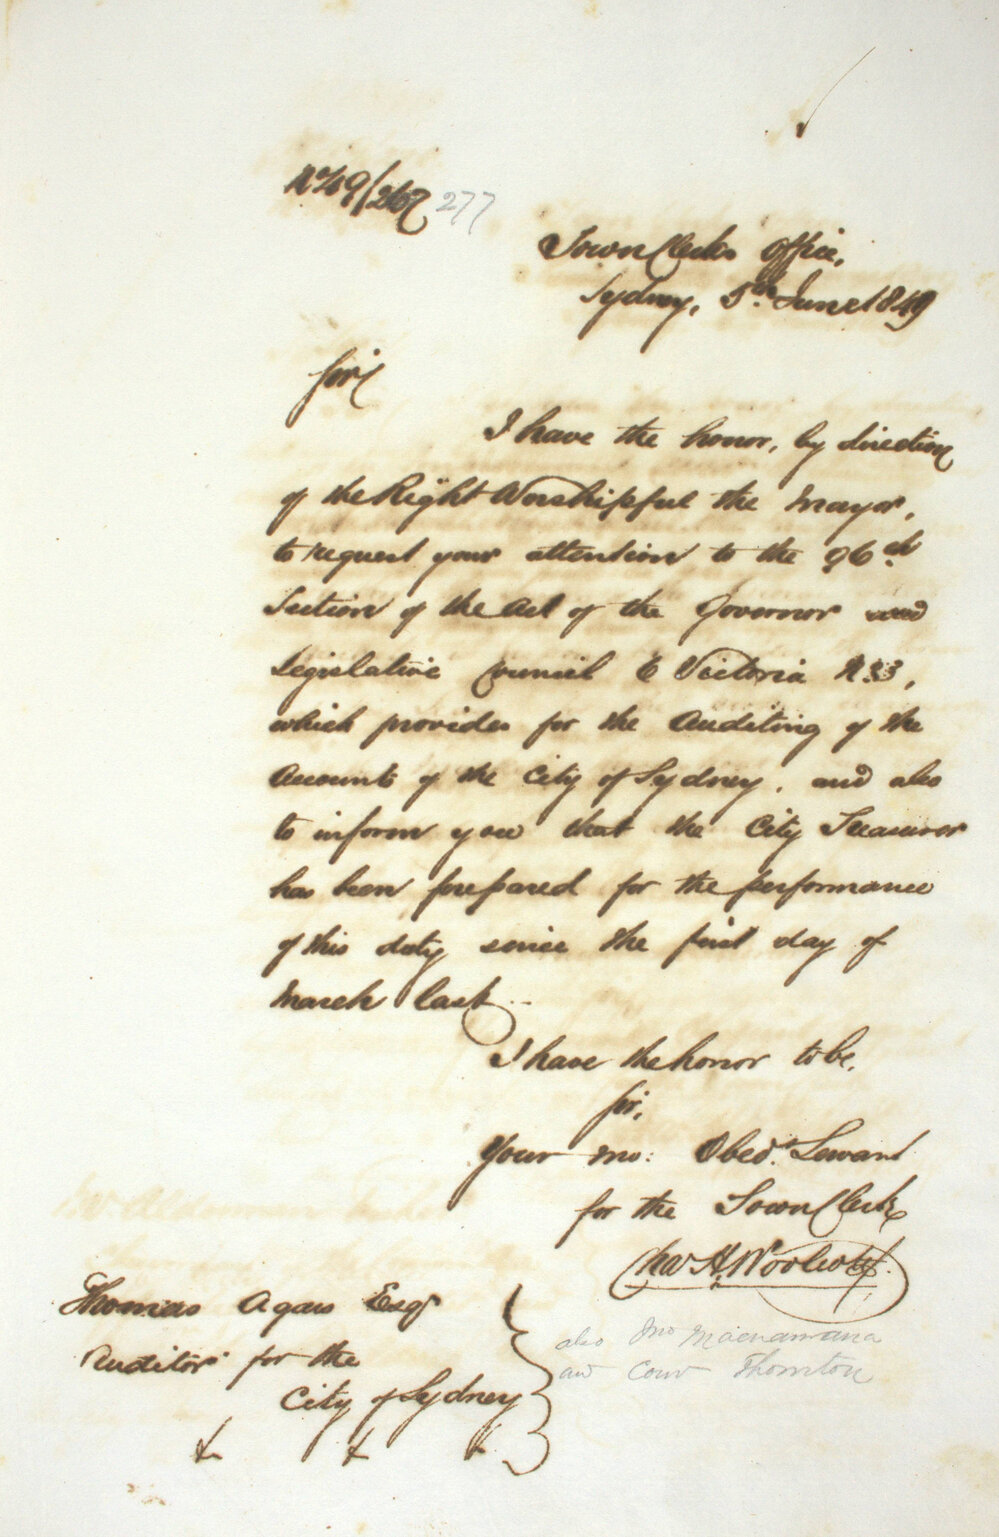 No 49/267 277
Town Clerks Office,
Sydney, 5th June 1849
Sir
I have the honor, by direction
of the Right Worshipful the Mayor,
to request your attention to the 96th
Section of the Act of the Governor and
Legislative Council 6 Victoria No 3,
which provides for the Auditing of the
Accounts of the City of Sydney, and also
to inform you that the City Treasurer
has been prepared for the performance
of this duty since the first day of
March last.
I have the honor to be,
Sir,
Your mo: Obedt. Servant
for the Town Clerk
Chas H. Woolcott.
Thomas Agars Esqr
Auditor for the
City of Sydney
also Mr Macnamara
and Cour Thornton